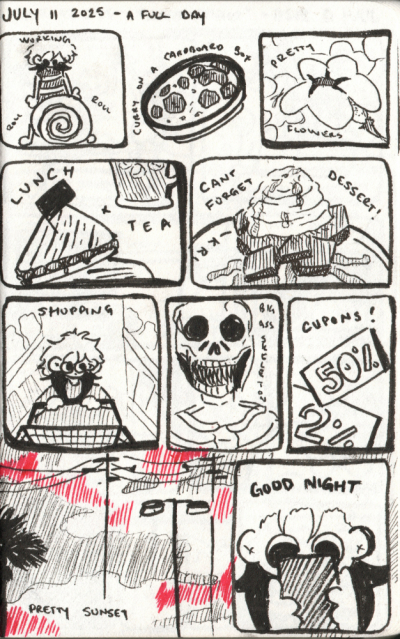 JULY 11 2025 - A FULL DAY
WORKING
ROLL
ROLL
CURRY ON A CARDBOARD BOX
PRETTY
FLOWERS
LUNCH
x
TEA
CANT
FORGET
DESSERT!
SHOPPING
BIG ASS SKELETON
CUPONS!
50%
2%
PRETTY SUNSET
GOOD NIGHT